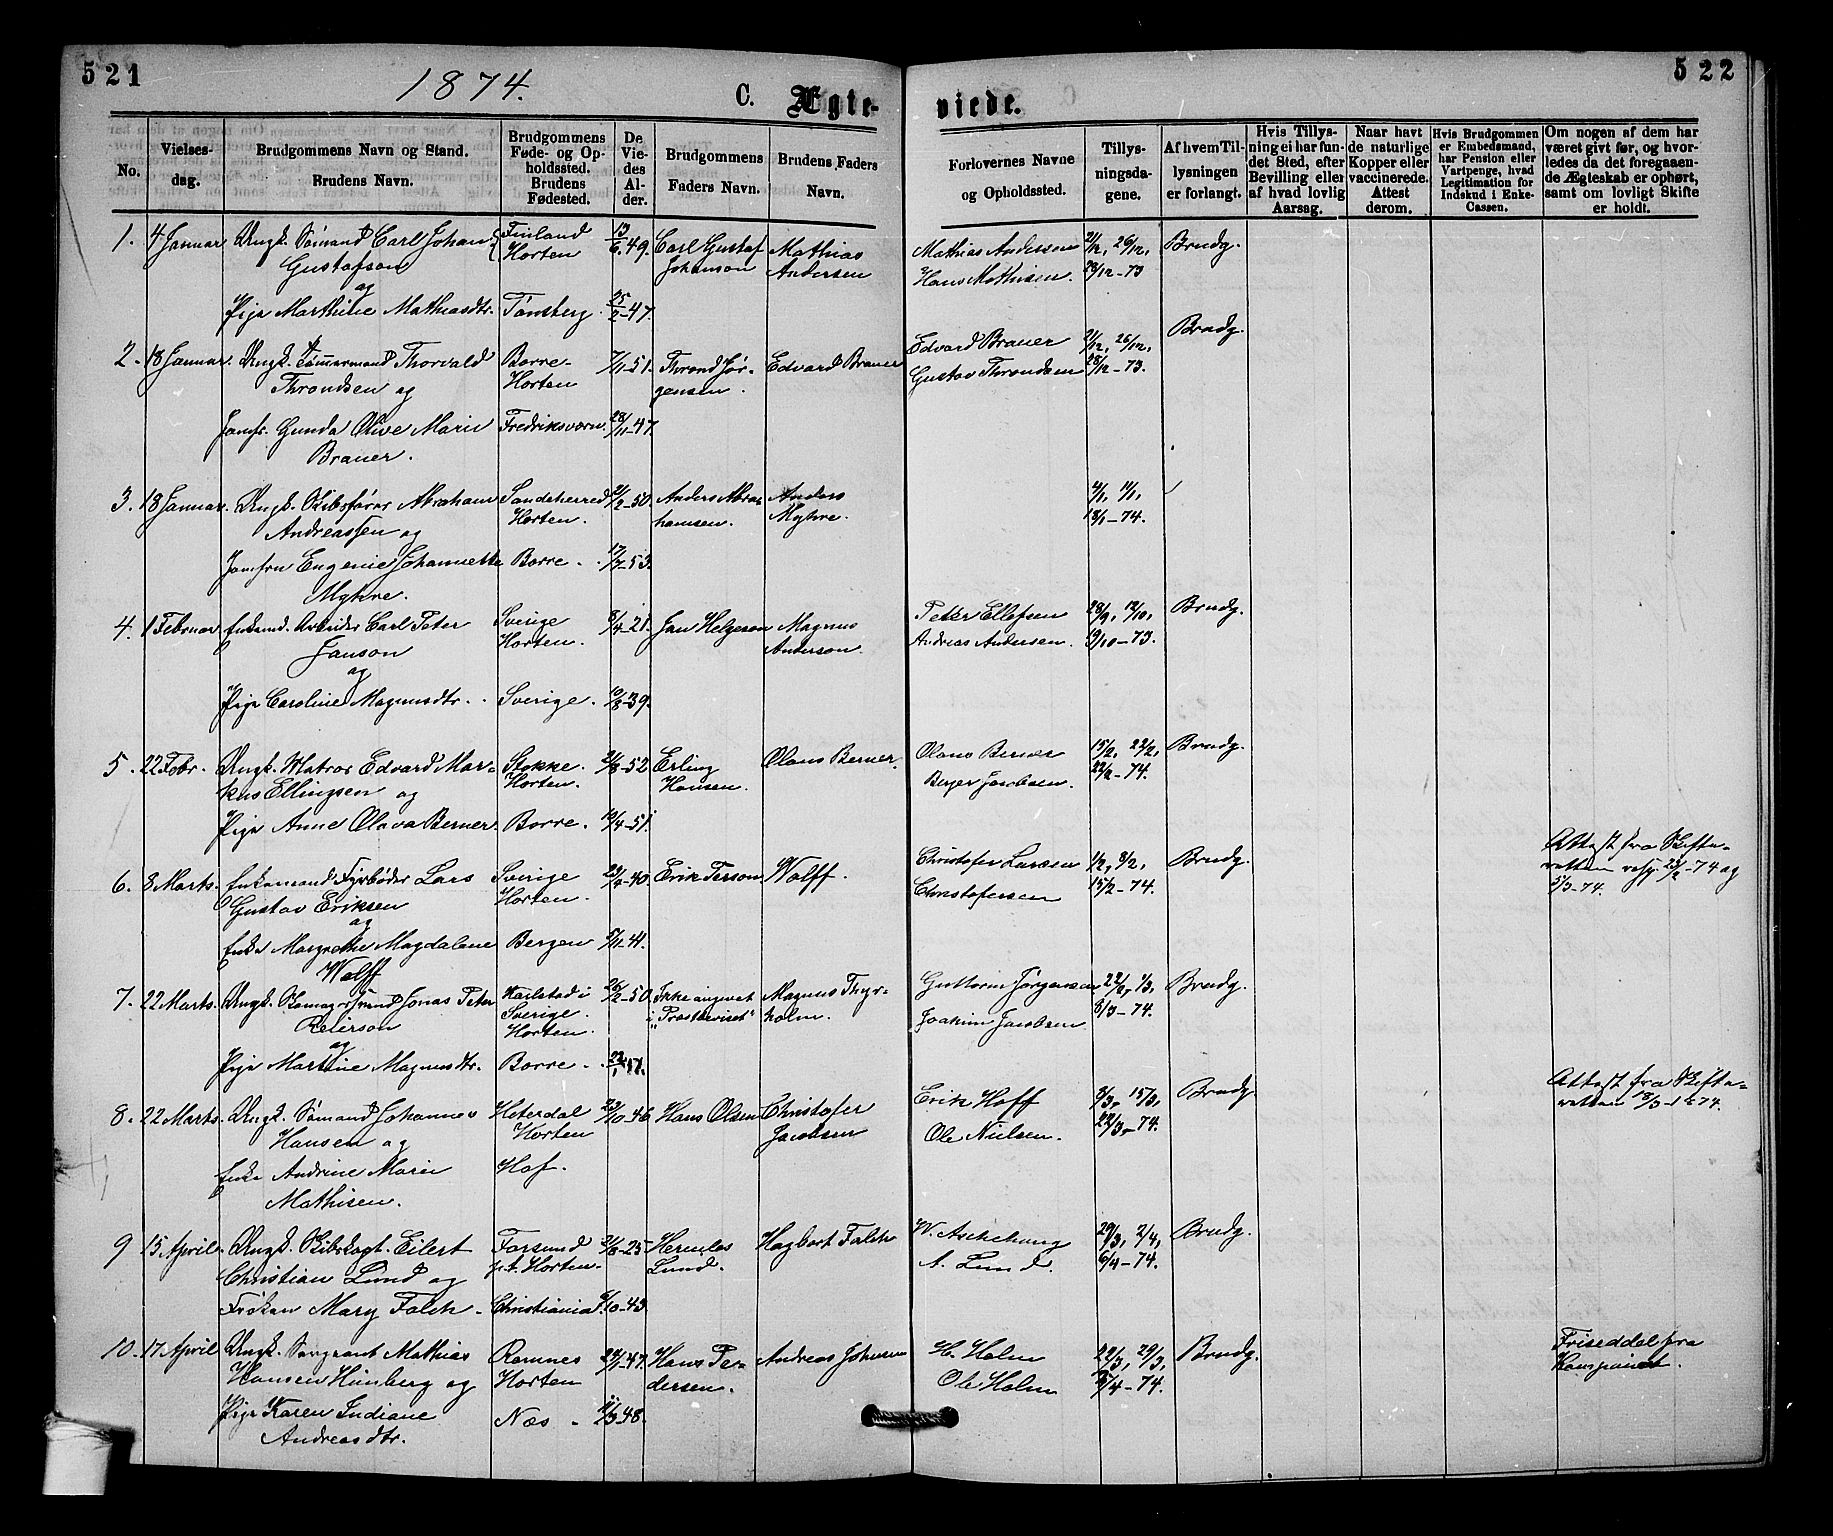 521
522
1874.
C. Ægte-
viede.
No.
Vielses-
dag.
Brudgommens Navn og Stand.
Brudens Navn.
Brudgommens
Føde- og Op-
holdssted.
Brudens
Fødested.
De
Vie-
des
Al-
der.
Brudgommens
Faders Navn.
Brudens Faders
Navn.
Forlovernes Navne
og Opholdssted.
Tillys-
ningsda-
gene.
Af hvem Til-
lysningen
er forlangt.
Hvis Tillys-
ning ei har fun-
det Sted, efter
Bevilling eller
af hvad lovlig
Aarsag.
Naar havt
de naturlige
Kopper eller
vaccinerede.
Attest
derom.
Hvis Brudgommen
er Embedsmand,
har Pension eller
Vartpenge, hvad
Legitimation for
Indskud i Enke-
Cassen.
Om nogen af dem har
været givt før, og hvor-
ledes da det foregaaen-
de Ægteskab er ophørt,
samt om lovligt Skifte
er holdt.
1. 4 Januar Ungk. Sømand Carl Johan Finland 13/6-49. Carl Gustaf Mathias Mathias Andersen 21/12, 26/12, Brudg.
Gustafson Horten Johanson Andersen Hans Mathisen. 28/12-73
og
Pige Marthine Mathiasdtr. Tønsberg. 25/2-47.
2. 18 Januar. Ungk. Tømmermand Thorvald Borre- 7/11-51. Thrond Jør- Edvard Brauer Edvard Brauer 21/12, 26/12, Brudg.
Throndsen og Horten gensen. Gustav Throndsen 28/12-73.
Jomfr. Gunda Olive Marie Fredriksværn. 28/11-47.
Brauer.
3. 18 Januar. Ungk. Skibsfører Abraham Sandeherred 21/2-50. Anders Abra- Anders 4/1, 11/1,
Andreassen og Horten. hamsen. Myhre. 18/1-74.
Jomfru Engenie Johannette Borre. 17/7-53.
Myhre.
4. 1 Februar Enkemd. Arbeider Carl Peter Sverige 8/4-21. Jan Helgeson Magnus Peter Ellefsen 28/9, 12/10, Brudg.
Janson Horten. Anderson. Andreas Andersen. 19/10-73.
og
Pige Caroline Magnusdtr. Sverige. 10/8-39.
5. 22 Febr. Ungk. Matros Edvard Mar- Stokke. 21/8-52 Erling Olaus Berner. Olaus Berner 15/2, 22/2, Brudg.
kus Ellingsen og Horten. Hansen. Berger Jacobsen. 22/2-74.
Pige Anne Olava Berner. Borre. 10/4-51.
6. 8 Marts. Enkemand Fyrbøder Lars Sverige 23/4-40. Erik Person Wolff. Christofer Larsen 1/2, 8/2, Brudg. Attest fra Skifte-
Gustav Eriksen Horten. Christofersen 15/2-74. retten resp. 23/2-74 og
og 5/3-74.
Enke Margrethe Magdalene Bergen 5/11-41.
Wolff
7. 22 Marts. Ungk. Jonas Peter Karlstad i 26/2-50 Ikke angivet Magnus Thyr- Guttorm Jørgensen 22/2, 1/3, Brudg.
Peterson Sverige. i "Præsteviset" holm. Joakim Jacobsen 8/3-74.
og Horten.
Pige Martine Magnusdtr. Borre.
8. 22 Marts. Ungk. Sømand Johannes Heterdal 23/10-46 Hans Olsen Christofer Erik Hoff 8/3, 15/3, Brudg. Attest fra Skifte-
Hansen og Horten Jacobsen Ole Nielsen. 22/3-74. retten 18/3-1874.
Enke Andrine Marie Hof.
Mathisen.
9 15 April. Ungk. Skibskapt. Eilert Farsund 21/8-25 Herulos Hagbart Falch W. Aschehoug 29/3, 2/4, Brudg.
Christian Lund og p.t. Horten. Lund. A. Lund. 6/4-74.
Frøken Mary Falch Christiania 9/10-43
10. 17 April Ungk. Sergeant Mathias Ramnes 24/1-47. Hans Pe- Andreas Johnsen H. Holm 22/3, 29/3, Brudg. Friseddel fra
Hansen Himberg og Horten dersen. Ole Holm 5/4-74. Kompaniet.
Pige Karen Indiane Næs. 11/9-48.
Andreasdtr.